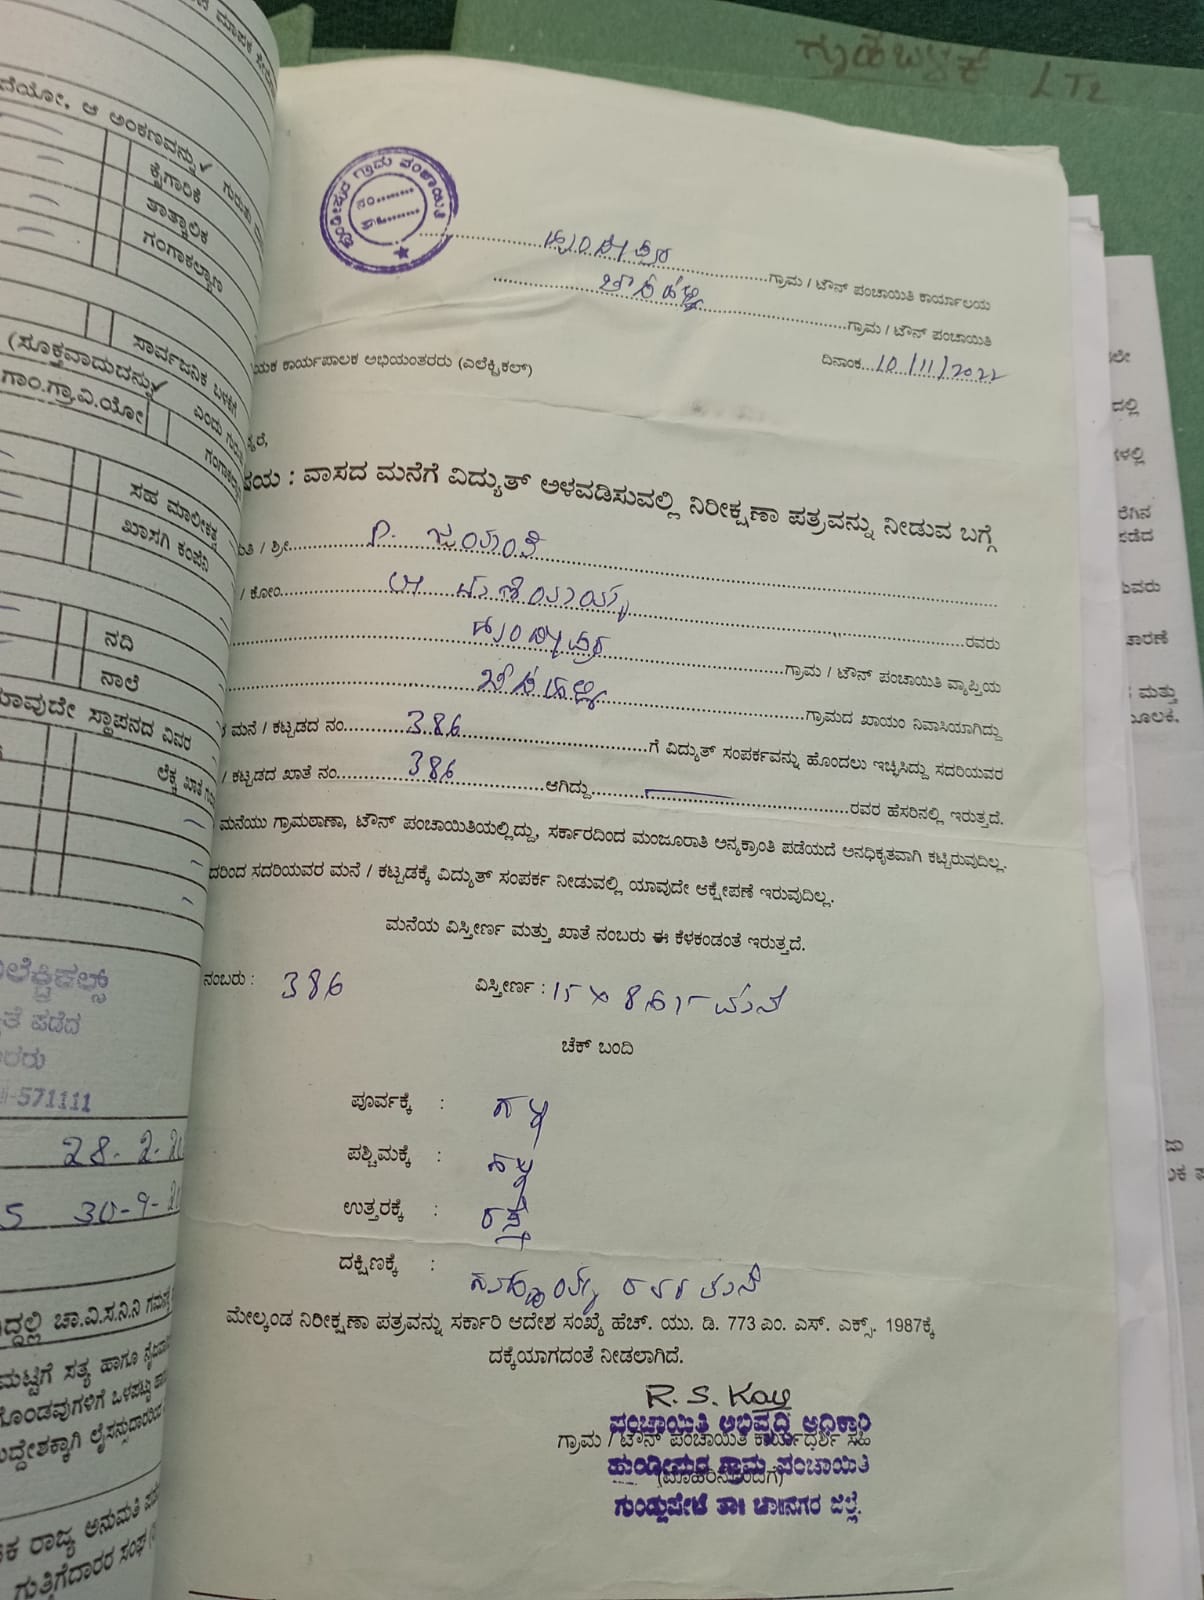 ಗೃಹಬಳಕೆ LT2
ಹುಂಡೀಪುರ ಗ್ರಾಮ ಪಂಚಾಯಿತಿ
ನಂ........
ದಿ........
ಹುಂಡೀಪುರ ಗ್ರಾಮ / ಟೌನ್ ಪಂಚಾಯಿತಿ ಕಾರ್ಯಾಲಯ
ಗ್ರಾಮ / ಟೌನ್ ಪಂಚಾಯಿತಿ
ದಿನಾಂಕ...10/11/2022
ಯಕ ಕಾರ್ಯಪಾಲಕ ಅಭಿಯಂತರರು (ಎಲೆಕ್ಟ್ರಿಕಲ್)
ರೆ,
ಷಯ : ವಾಸದ ಮನೆಗೆ ವಿದ್ಯುತ್ ಅಳವಡಿಸುವಲ್ಲಿ ನಿರೀಕ್ಷಣಾ ಪತ್ರವನ್ನು ನೀಡುವ ಬಗ್ಗೆ
ತಿ / ಶ್ರೀ........ P. ಜಯಂತಿ
/ ಕೋಂ........ ರವರು
ಹುಂಡೀಪುರ ಗ್ರಾಮ / ಟೌನ್ ಪಂಚಾಯಿತಿ ವ್ಯಾಪ್ತಿಯ
ಗ್ರಾಮದ ಖಾಯಂ ನಿವಾಸಿಯಾಗಿದ್ದು
ಮನೆ / ಕಟ್ಟಡದ ನಂ........ 386 ........ಗೆ ವಿದ್ಯುತ್ ಸಂಪರ್ಕವನ್ನು ಹೊಂದಲು ಇಚ್ಛಿಸಿದ್ದು ಸದರಿಯವರ
/ ಕಟ್ಟಡದ ಖಾತೆ ನಂ........ 386 ........ಆಗಿದ್ದು........ರವರ ಹೆಸರಿನಲ್ಲಿ ಇರುತ್ತದೆ.
ಮನೆಯು ಗ್ರಾಮಠಾಣಾ, ಟೌನ್ ಪಂಚಾಯಿತಿಯಲ್ಲಿದ್ದು, ಸರ್ಕಾರದಿಂದ ಮಂಜೂರಾತಿ ಅನ್ಯಕ್ರಾಂತಿ ಪಡೆಯದೆ ಅನಧಿಕೃತವಾಗಿ ಕಟ್ಟಿರುವುದಿಲ್ಲ.
ದರಿಂದ ಸದರಿಯವರ ಮನೆ / ಕಟ್ಟಡಕ್ಕೆ ವಿದ್ಯುತ್ ಸಂಪರ್ಕ ನೀಡುವಲ್ಲಿ ಯಾವುದೇ ಆಕ್ಷೇಪಣೆ ಇರುವುದಿಲ್ಲ.
ಮನೆಯ ವಿಸ್ತೀರ್ಣ ಮತ್ತು ಖಾತೆ ನಂಬರು ಈ ಕೆಳಕಂಡಂತೆ ಇರುತ್ತದೆ.
ನಂಬರು : 386 ವಿಸ್ತೀರ್ಣ :
ಚೆಕ್ ಬಂದಿ
ಪೂರ್ವಕ್ಕೆ : ಗಲ್ಲಿ
ಪಶ್ಚಿಮಕ್ಕೆ : ಗಲ್ಲಿ
ಉತ್ತರಕ್ಕೆ : ರಸ್ತೆ
ದಕ್ಷಿಣಕ್ಕೆ : ಮನೆ
ಮೇಲ್ಕಂಡ ನಿರೀಕ್ಷಣಾ ಪತ್ರವನ್ನು ಸರ್ಕಾರಿ ಆದೇಶ ಸಂಖ್ಯೆ ಹೆಚ್. ಯು. ಡಿ. 773 ಎಂ. ಎಸ್. ಎಕ್ಸ್. 1987ಕ್ಕೆ
ದಕ್ಕೆಯಾಗದಂತೆ ನೀಡಲಾಗಿದೆ.
ಪಂಚಾಯಿತಿ ಅಭಿವೃದ್ಧಿ ಅಧಿಕಾರಿ
ಗ್ರಾಮ / ಟೌನ್ ಪಂಚಾಯಿತಿ ಕಾರ್ಯದರ್ಶಿ ಸಹಿ
ಹುಂಡೀಪುರ ಗ್ರಾಮ ಪಂಚಾಯಿತಿ
(ಮೊಹರಿನೊಂದಿಗೆ)
ಗುಂಡ್ಲುಪೇಟೆ ತಾ॥ ಚಾ॥ನಗರ ಜಿಲ್ಲೆ.
ವೆಯೋ, ಆ ಅಂಕಣವನ್ನು ✓ ಗುರುತು
ಕೈಗಾರಿಕೆ
ತಾತ್ಕಾಲಿಕ
ಗಂಗಾಕಲ್ಯಾಣ
ಸಾರ್ವಜನಿಕ ಬಳಕೆಗೆ
(ಸೂಕ್ತವಾದುದನ್ನು ✓ ಎಂದು ಗುರು
ಗಾಂ.ಗ್ರಾ.ವಿ.ಯೋ
ಸಹ ಮಾಲೀಕತ್ವ
ಖಾಸಗಿ ಕಂಪೆನಿ
ನದಿ
ನಾಲೆ
ಯಾವುದೇ ಸ್ಥಾಪನದ ವಿವರ
ಲೆಕ್ಕ ಖಾತೆ
ಲೆಕ್ಟ್ರಿಕಲ್ಸ್
ತೆ ಪಡೆದ
-571111
28-2-20
30-9-20
ದ್ದಲ್ಲಿ ಚಾ.ವಿ.ಸ.ನಿ.ನಿ ಗಮನಕ್ಕೆ
ಮಟ್ಟಿಗೆ ಸತ್ಯ ಹಾಗೂ ನೈಜ
ಗೊಂಡವುಗಳಿಗೆ ಒಳಪಟ್ಟು
ದ್ದೇಶಕ್ಕಾಗಿ ಲೈಸನ್ಸುದಾರರಿಂದ
ಕ ರಾಜ್ಯ ಅನುಮತಿ ಪಡೆ
ಗುತ್ತಿಗೆದಾರರ ಸಂಘ